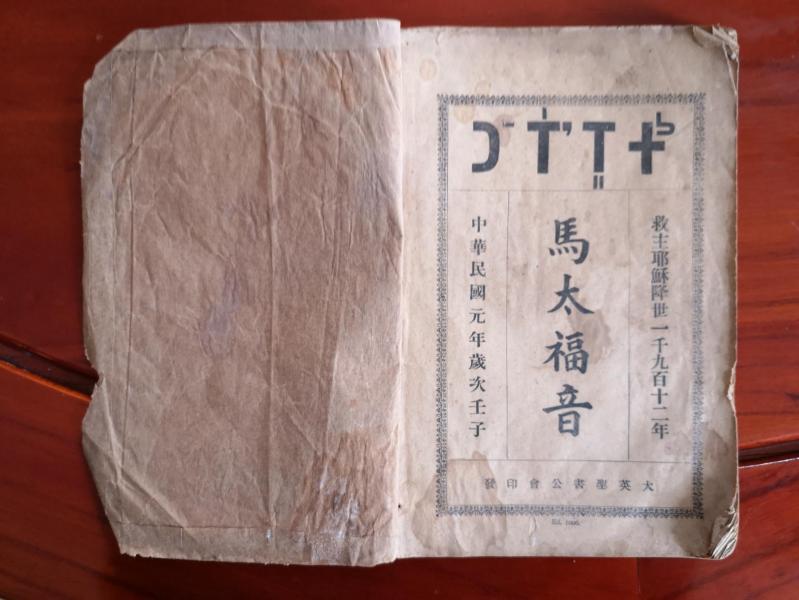 救主耶穌降世一千九百十二年
馬太福音
中華民國元年歲次壬子
大英聖書公會印發